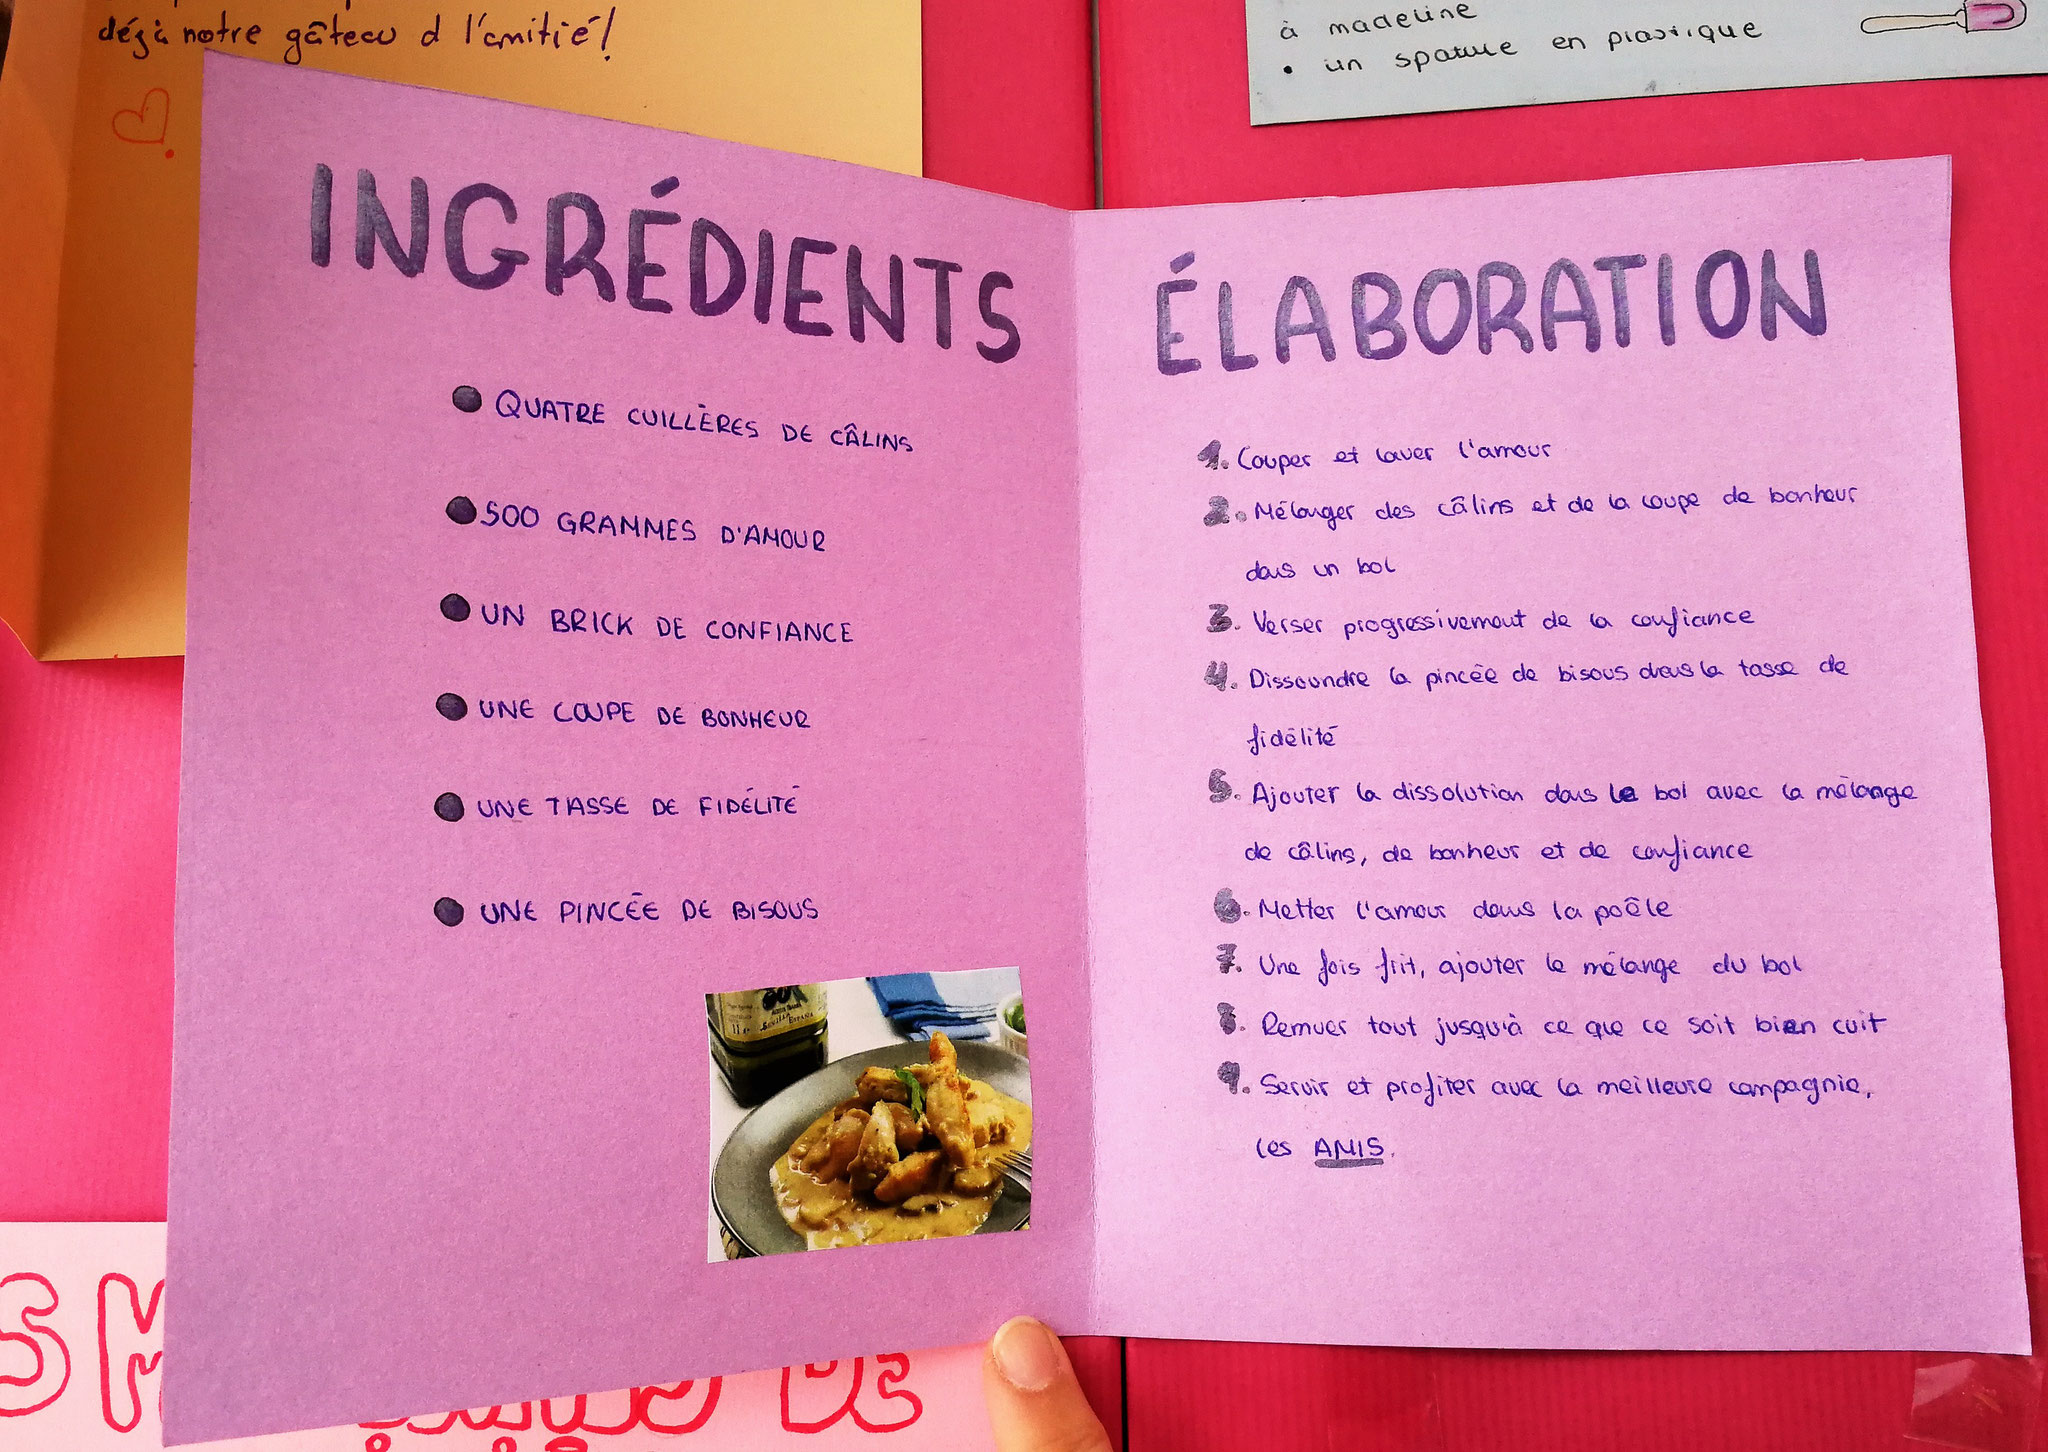 déjà notre gâteau d l'amitié!
à madeline
• un spatule en plastique
INGRÉDIENTS
● QUATRE CUILLÈRES DE CÂLINS
● 500 GRAMMES D'AMOUR
● UN BRICK DE CONFIANCE
● UNE COUPE DE BONHEUR
● UNE TASSE DE FIDÉLITÉ
● UNE PINCÉE DE BISOUS
ÉLABORATION
1. Couper et laver l'amour
2. Mélanger des câlins et de la coupe de bonheur
dans un bol
3. Verser progressivement de la confiance
4. Dissoundre la pincée de bisous dans la tasse de
fidélité
5. Ajouter la dissolution dans le bol avec la mélange
de câlins, de bonheur et de confiance
6. Metter l'amour dans la poêle
7. Une fois frit, ajouter le mélange du bol
8. Remuer tout jusqu'à ce que ce soit bien cuit
9. Servir et profiter avec la meilleure campagnie,
les AMIS.
SEVILLA ESPAÑA
S M
DE